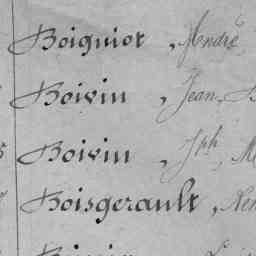 Boiguiot, André
Boivin, Jean,
Boivin, Jph,
Boisgerault,